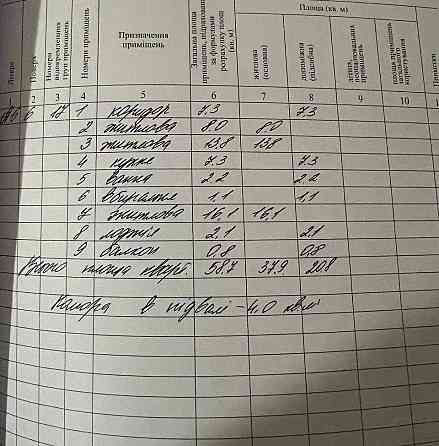 Площа (кв. м)
Літера
Поверх
Номери відокремлених груп приміщень
Номери приміщень
Призначення приміщень
Загальна площа приміщень, підрахована за формулами розрахунку площ (кв. м)
житлова (основна)
допоміжна (підсобна)
площа приміщень загального користування
2 3 4 5 6 7 8 9 10
6 17 1 коридор 7.3 7.3
2 житлова 8.0 8.0
3 житлова 13.8 13.8
4 кухне 7.3 7.3
5 ванна 2.2 2.2
6 вбиральне 1,1 1,1
7 житлова 16,1 16,1
8 лоджія 2,1 2,1
9 балкон 0,8 0,8
Всього площа кварт. 58.7 37.9 20.8
Комора в підвалі - 4.0 кв.м